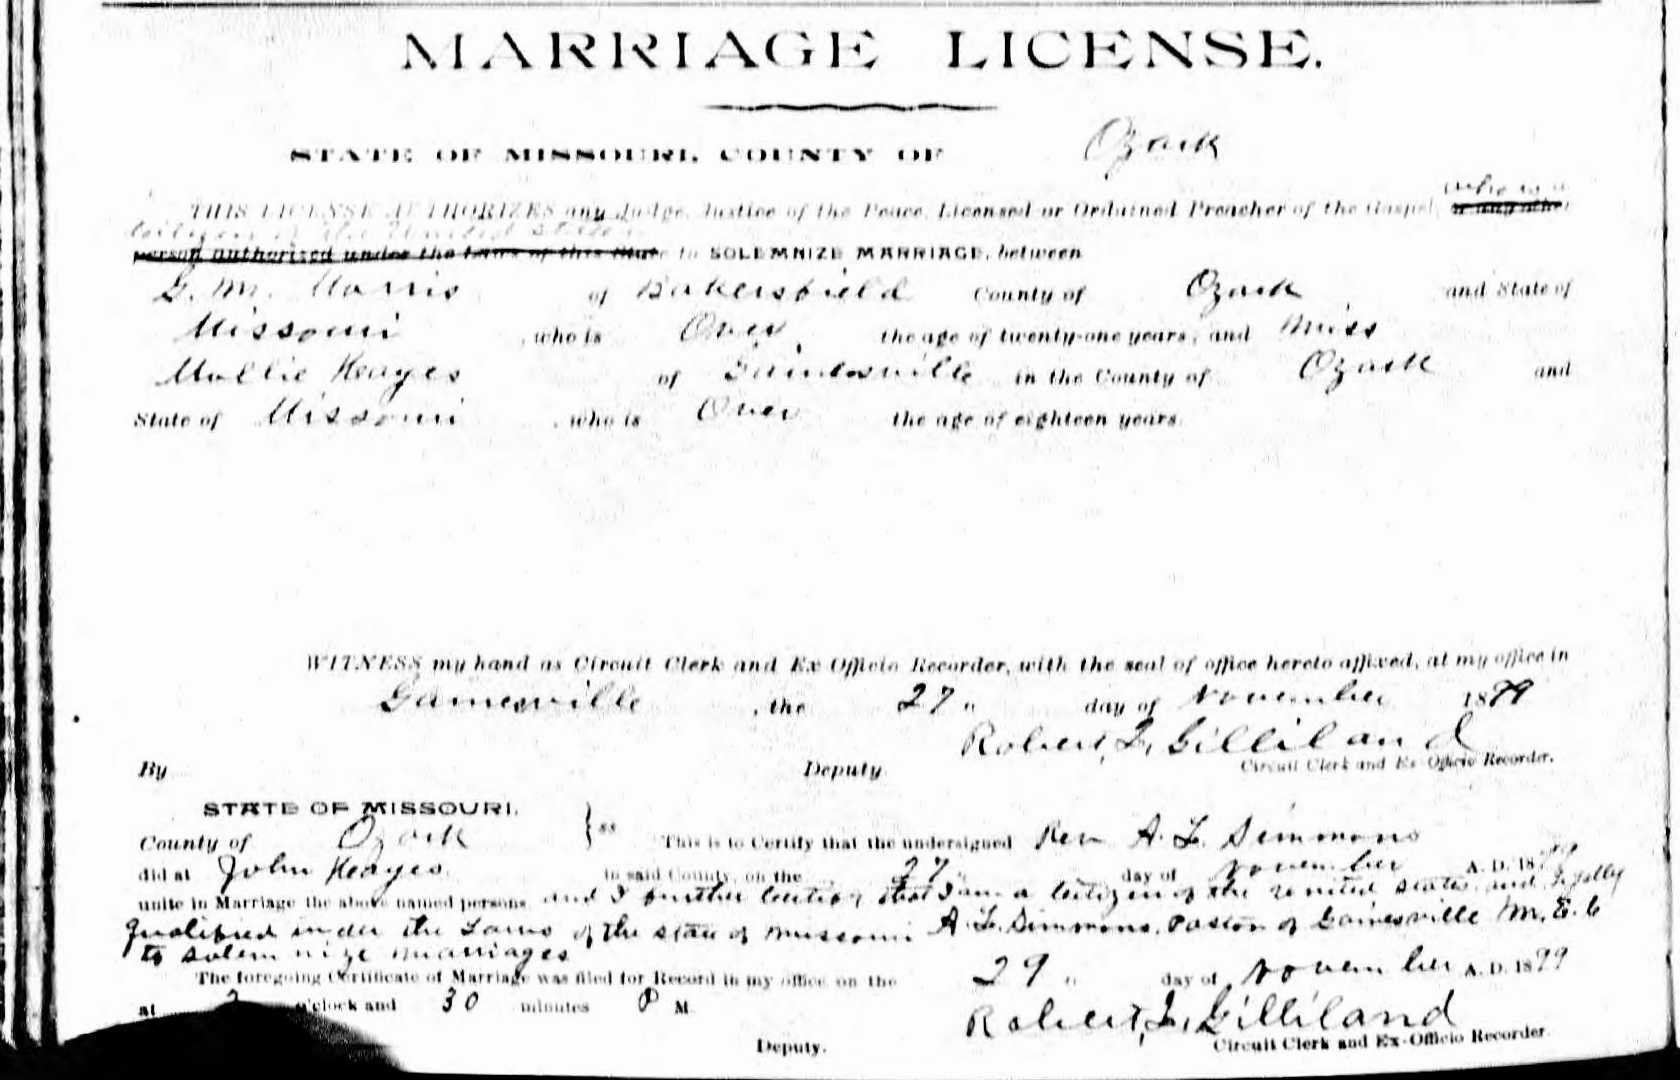 MARRIAGE LICENSE.
STATE OF MISSOURI, COUNTY OF Ozark
who is a
THIS LICENSE AUTHORIZES any Judge, Justice of the Peace, Licensed or Ordained Preacher of the Gospel, or any other
Citizen of the United States
person authorized under the Laws of this State to SOLEMNIZE MARRIAGE, between
G. M. Harris of Bakersfield County of Ozark and State of
Missouri , who is Over the age of twenty-one years, and Miss
Mollie Keayes of Gainesville in the County of Ozark and
State of Missouri , who is Over the age of eighteen years.
WITNESS my hand as Circuit Clerk and Ex Officio Recorder, with the seal of office hereto affixed, at my office in
Gainesville , the 27" day of November 1899
Robert Gilliland
By Deputy Circuit Clerk and Ex-Officio Recorder.
STATE OF MISSOURI,
County of Ozark } ss This is to Certify that the undersigned Rev A. L. Simmons
did at John Keayes in said County, on the 27" day of November A. D. 1899
unite in Marriage the above named persons and I further certify that I am a Citizen of the united States and Legally
Qualified under the Laws of the state of Missouri A. L. Simmons, Pastor of Gainesville M. E. C
to solemnize marriages
The foregoing Certificate of Marriage was filed for Record in my office on the 29" day of November A. D. 1899
at o'clock and 30 minutes P M.
Robert Gilliland
Deputy. Circuit Clerk and Ex-Officio Recorder.